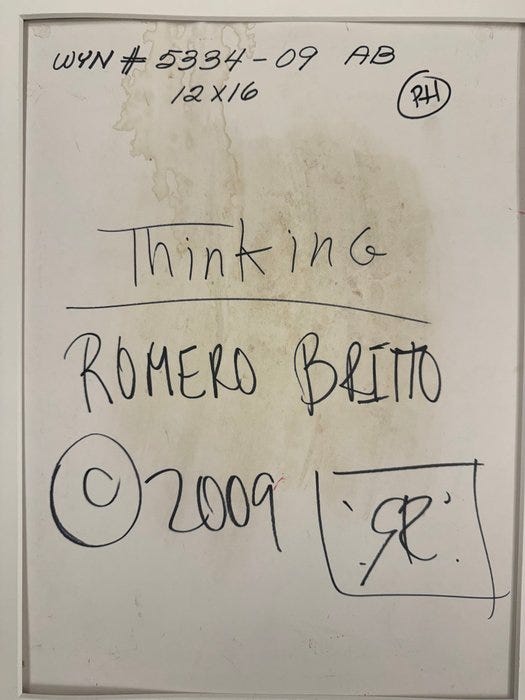 WYN # 5334-09 AB
12 x 16
RH
Thinking
ROMERO BRITTO
© 2009